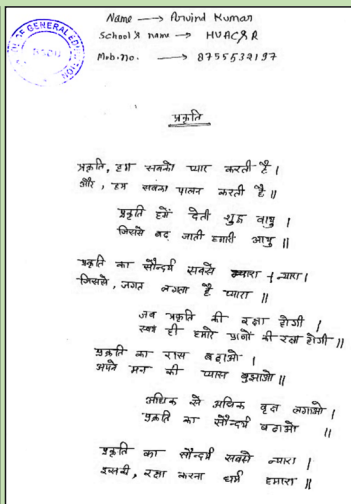 Name → Arvind Kumar
School's name → HVAC&R
Mob.no. → 8755532197
OF GENERAL EDUCATION
प्रकृति
प्रकृति, हम सबको प्यार करती है।
और, हम सबका पालन करती है॥
प्रकृति हमें देती शुद्ध वायु।
जिससे बढ़ जाती हमारी आयु॥
प्रकृति का सौन्दर्य सबसे न्यारा - न्यारा।
जिससे, जगत लगता है प्यारा॥
जब प्रकृति की रक्षा होगी।
स्वयं ही हमारे प्राणों की रक्षा होगी॥
प्रकृति का रास बढ़ाओ।
अपने मन की प्यास बुझाओ॥
अधिक से अधिक वृक्ष लगाओ।
प्रकृति का सौन्दर्य बढाओ॥
प्रकृति का सौन्दर्य सबसे न्यारा।
इसकी, रक्षा करना धर्म हमारा॥